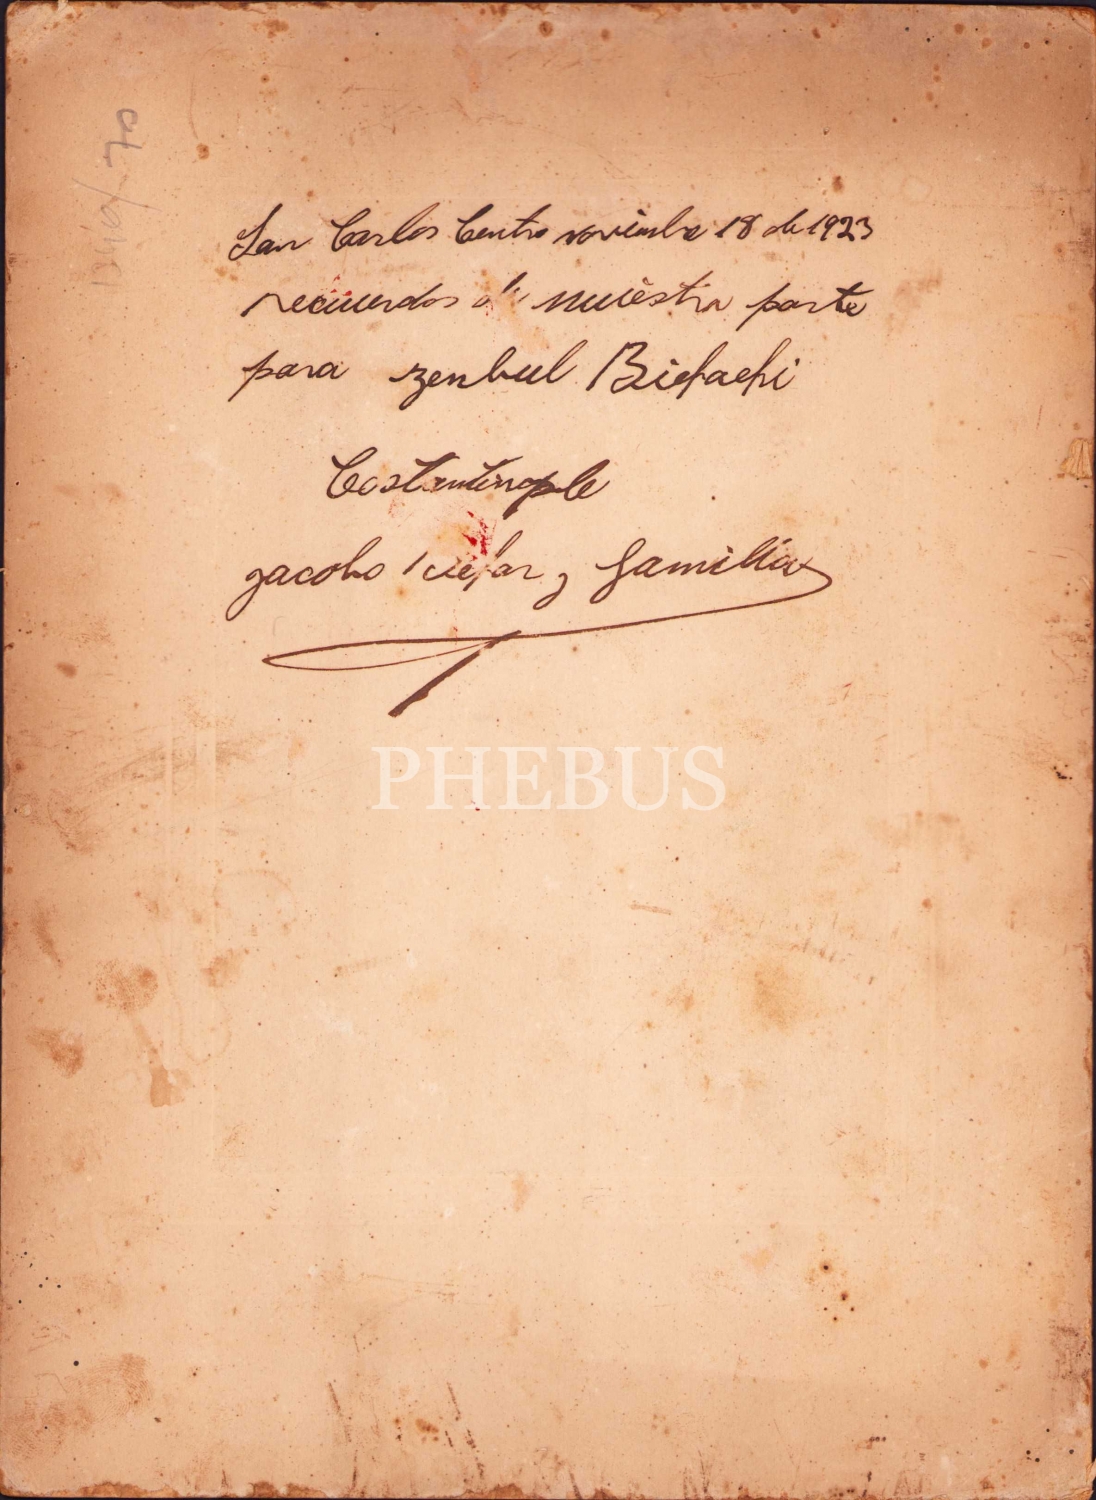 San Carlos Centro noviembre 18 de 1923
recuerdos de nuiestra parte
para zenbul
Costantinople
jacobo y familia
PHEBUS